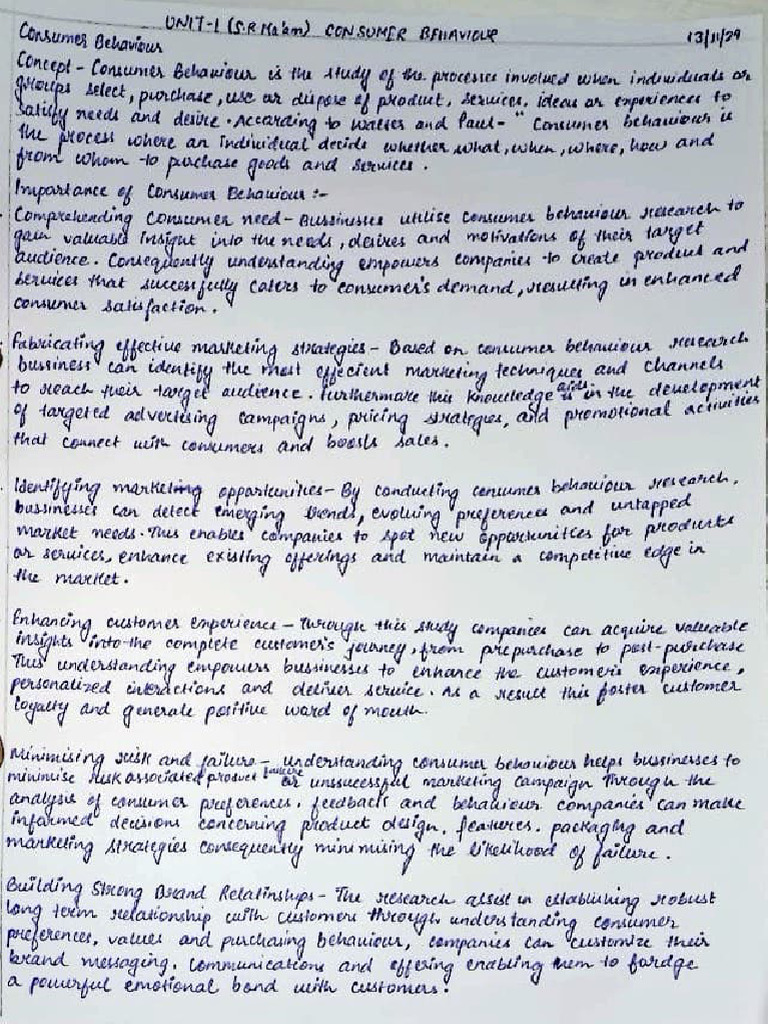 UNIT-1 (S.R Ma'am) CONSUMER BEHAVIOUR 13/11/29
Consumer Behaviour
Concept - Consumer Behaviour is the study of the processes involved when individuals or
groups select, purchase, use or dispose of product, services, ideas or experiences to
satisfy needs and desire. According to Walter and Paul - " Consumer behaviour is
the process where an individual decide whether what, when, where, how and
from whom to purchase goods and services.
Importance of Consumer Behaviour :-
Comprehending Consumer need - Bussinesses utilise consumer behaviour research to
gain valuable insight into the needs, desires and motivations of their target
audience. Consequently understanding empowers companies to create product and
services that successfully caters to consumer's demand, resulting in enhanced
consumer satisfaction.
Fabricating effective marketing strategies - Based on consumer behaviour research
bussiness can identify the most effecient marketing techniques and channels
to reach their target audience. Furthermore this knowledge aids in the development
of targeted advertising campaigns, pricing strategies, and promotional activities
that connect with consumers and boosts sales.
Identifying marketing opportunities - By conducting consumer behaviour research,
bussinesses can detect emerging trends, evolving preferences and untapped
market needs. This enables companies to spot new opportunities for products
or services, enhance existing offerings and maintain a competitive edge in
the market.
Enhancing customer experience - Through this study companies can acquire valuable
insights into the complete customer's journey, from prepurchase to post-purchase
This understanding empowers bussinesses to enhance the customer's experience,
personalized interactions and deliver service. As a result this foster customer
loyalty and generate positive word of mouth.
Minimising risk and failure - understanding consumer behaviour helps bussinesses to
minimise risk associated product failure or unssucessful marketing campaign Through the
analysis of consumer preferences, feedback and behaviour companies can make
informed decisions concerning product design, features, packaging and
marketing strategies consequently minimising the likelihood of failure.
Building Strong Brand Relatinships - The research assist in establishing robust
long term relationship with customers through understanding consumer
preferences, values and purchasing behaviour, companies can customize their
brand messaging, communications and offering enabling them to fordge
a powerful emotional bond with customers.